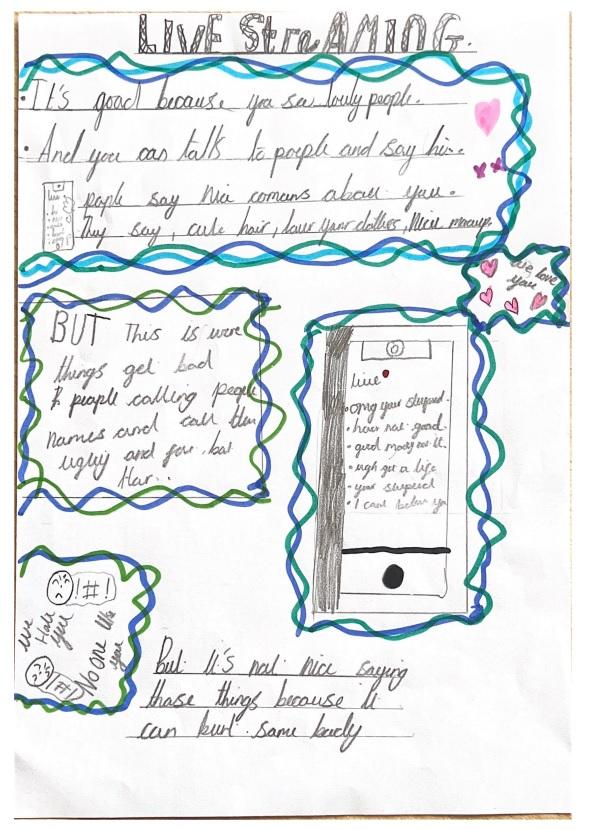 LIVE StreAMING.
• It's good because you see lovly people.
• And you can talk to people and say hi...
people say nice comans about you.
They say, cute hair, love your clothes, Nice macup.
we love
you
BUT This is were
things get bad
people calling people
names and call them
uglly and you bat
Har...
live
• omg your stupid.
• hair not good.
• get a life
• your stupeid
• I cant belive you
!#!
we
Hate
you
No one like
you
!#!
But it's not nice saying
those things because it
can hurt some body